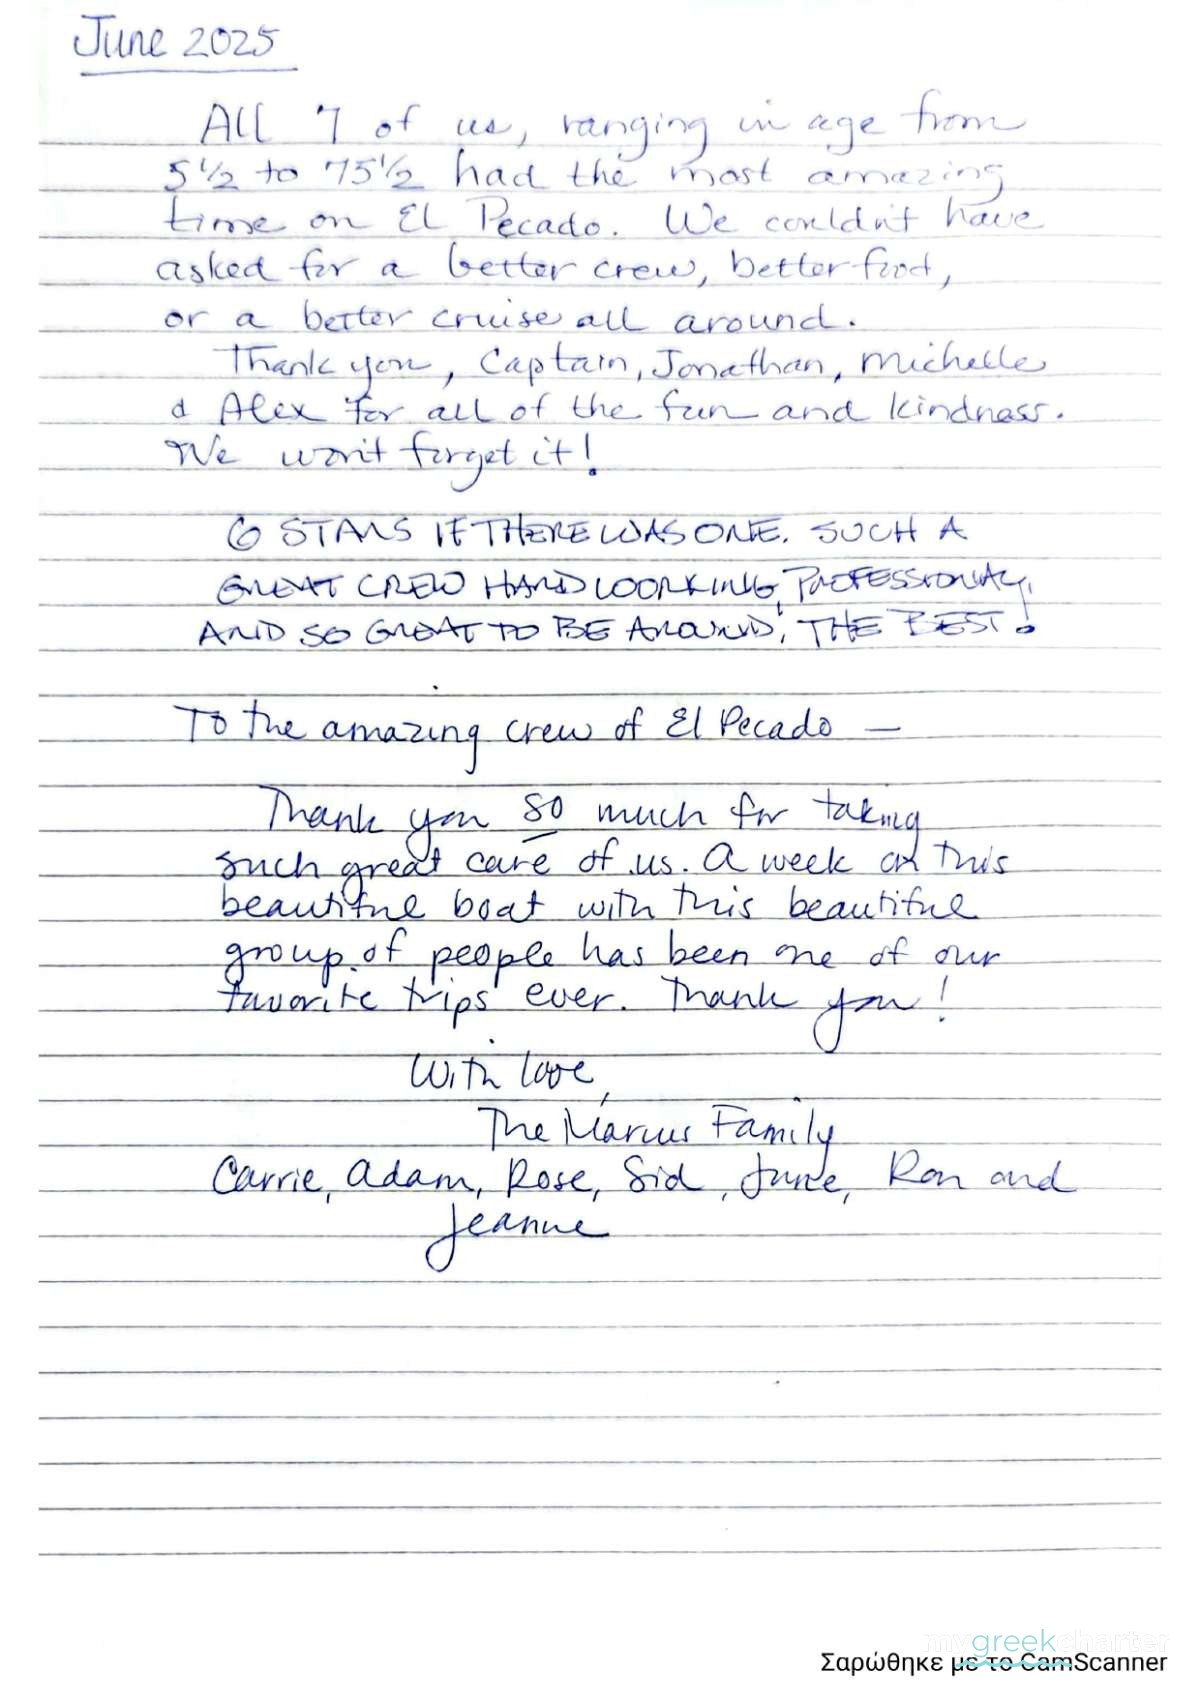 June 2025
All 7 of us, ranging in age from
5 1/2 to 75 1/2 had the most amazing
time on El Pecado. We couldn't have
asked for a better crew, better food,
or a better cruise all around.
Thank you, Captain, Jonathan, Michelle
& Alex for all of the fun and kindness.
We won't forget it!
6 STARS IF THERE WAS ONE. SUCH A
GREAT CREW HARD WORKING, PROFESSIONAL,
AND SO GREAT TO BE AROUND! THE BEST!
To the amazing crew of El Pecado —
Thank you so much for taking
such great care of us. A week on this
beautiful boat with this beautiful
group of people has been one of our
favorite trips ever. Thank you!
With love,
The Marcus Family
Carrie, Adam, Rose, Sid, June, Ron and
Jeanne
mygreekcharter
Σαρώθηκε με το CamScanner